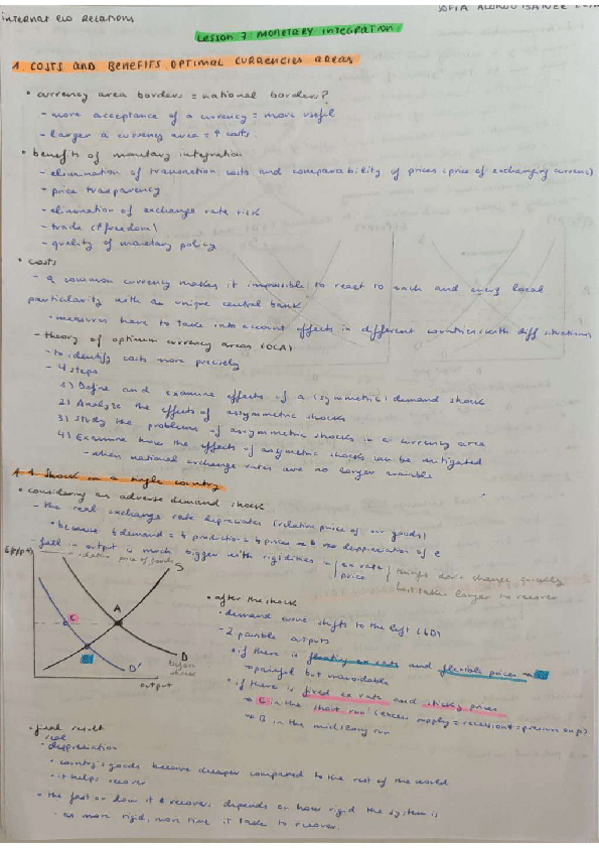 INTERNAT ECO RELATIONS
SOFIA
Lesson 7: MONETARY INTEGRATION
1. COSTS AND BENEFITS OPTIMAL CURRENCIES AREAS
• currency area borders = national borders?
- more acceptance of a currency = more useful
- larger a currency area = ↑ costs
• benefits of monetary integration
- elimination of transaction costs and comparability of prices (price of exchanging currency)
- price transparency
- elimination of exchange rate risk
- trade (↑ freedom)
- quality of monetary policy
• costs
- a common currency makes it impossible to react to each and every local
particularity with an unique central bank
• measures have to take into account effects in different countries (with diff situations)
- theory of optimum currency areas (OCA)
- to identify costs more precisely
- 4 steps
1) Define and examine effects of a (symmetric) demand shock
2) Analyze the effects of assymmetric shocks
3) Study the problems of assymmetric shocks in a currency area
4) Examine how the effects of asymetric shocks can be mitigated
- when national exchange rates are no longer available
1.1. Shock in a single country
• considering an adverse demand shock
- the real exchange rate depreciates (relative price of our goods)
• because ↓ demand = ↓ production = ↓ prices no depreciation of e
- fall in output is much bigger with rigidities in ex rate
price
things don't change quickly
longer to recover
relative price of goods
S
A
C
B
D
before
shock
D'
output
• after the shock
• demand curve shifts to the left (↓D)
- 2 possible outputs
• if there is floating ex rates and flexible prices → B
→ painful but unavoidable
• if there is fixed ex rate and sticky prices
→ C in the short run (excess supply = recession = pressure on p)
→ B in the mid/long run
• final result
real
• deppreciation
• country's goods become cheaper compared to the rest of the world
• it helps recover
• the fast or slow it recovers depends on how rigid the system is
- as more rigid, more time it take to recover.